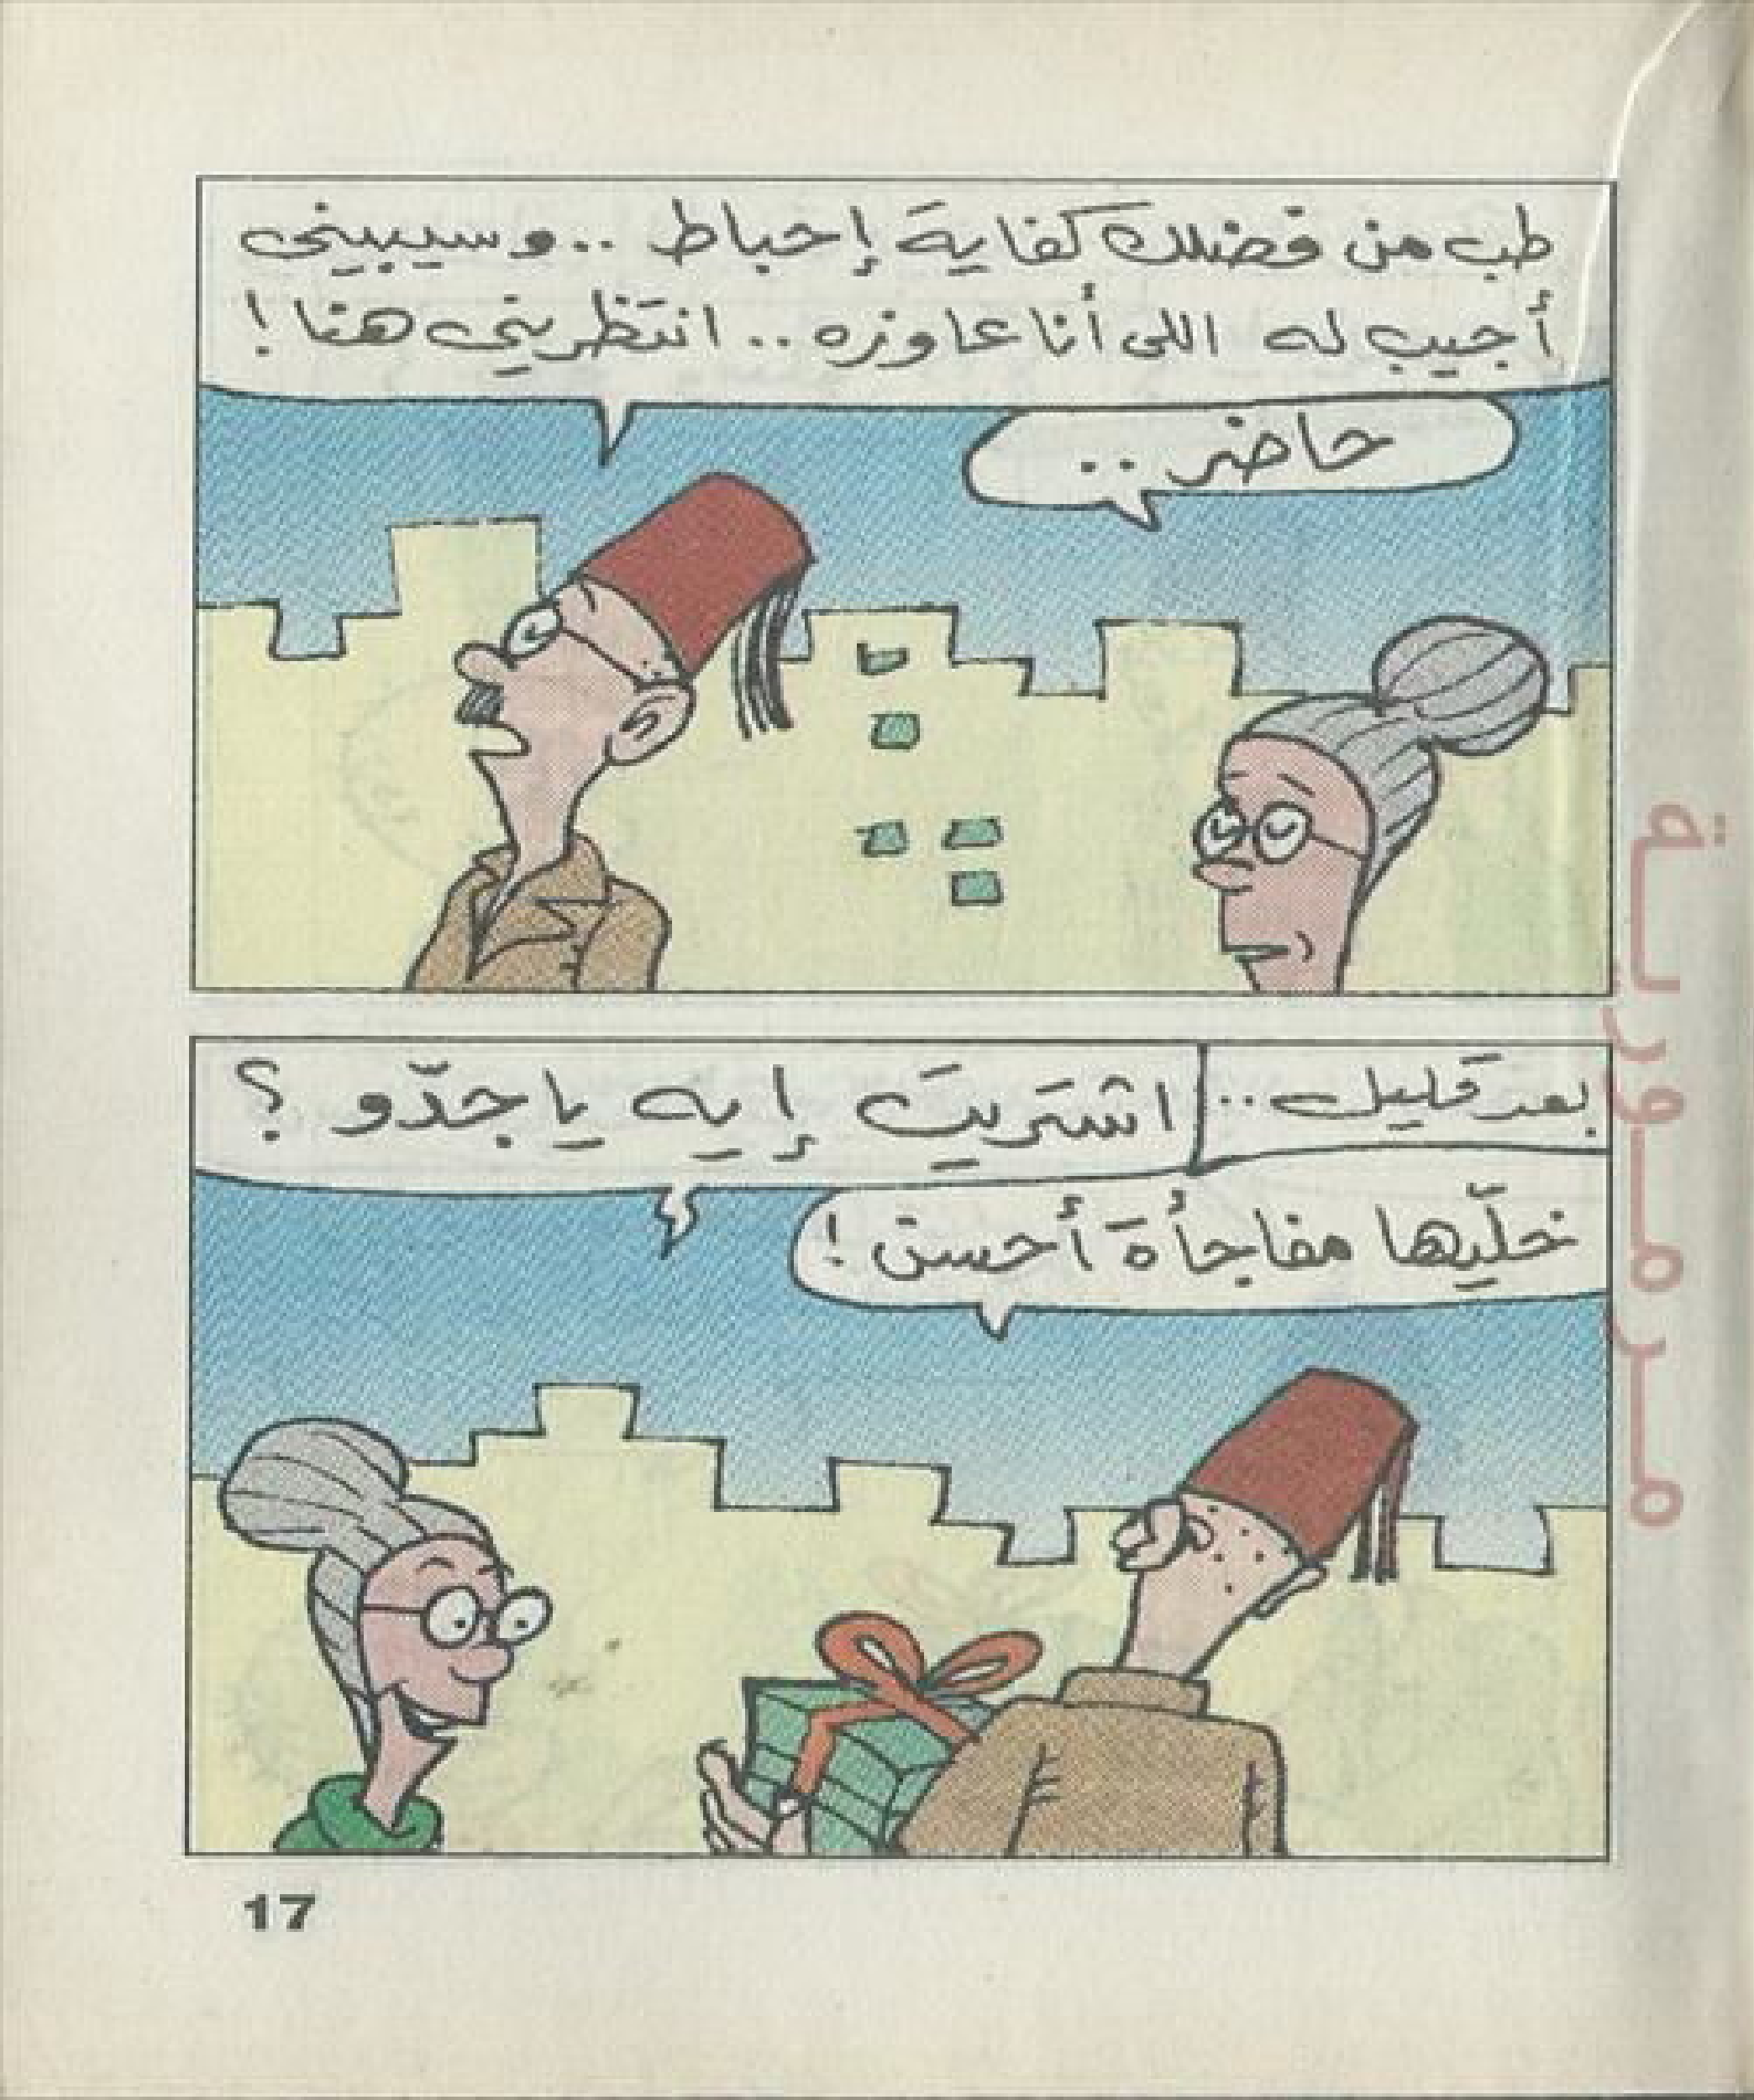 طب من فضلك كفاية إحباط .. وسيبيني
أجيب له اللى أنا عاوزه .. انتظريني هنا !
حاضر ..
بعد قليل ..
اشتريتَ إيه يا جدّو ؟
خلّيها مفاجأة أحسن !
17
مرمورية